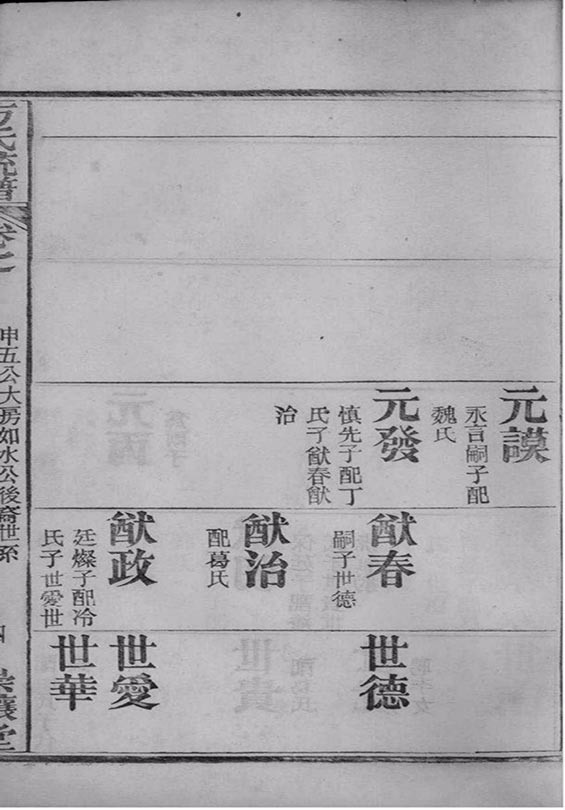 元謨
永言嗣子配
魏氏
元發
慎先子配丁
氏子猷春猷
治
猷春
嗣子世德
猷治
配葛氏
猷政
廷燦子配冷
氏子世愛世
世德
世愛
世華
氏流譜
卷之
申五公大房如水公後裔世系
四
讓堂